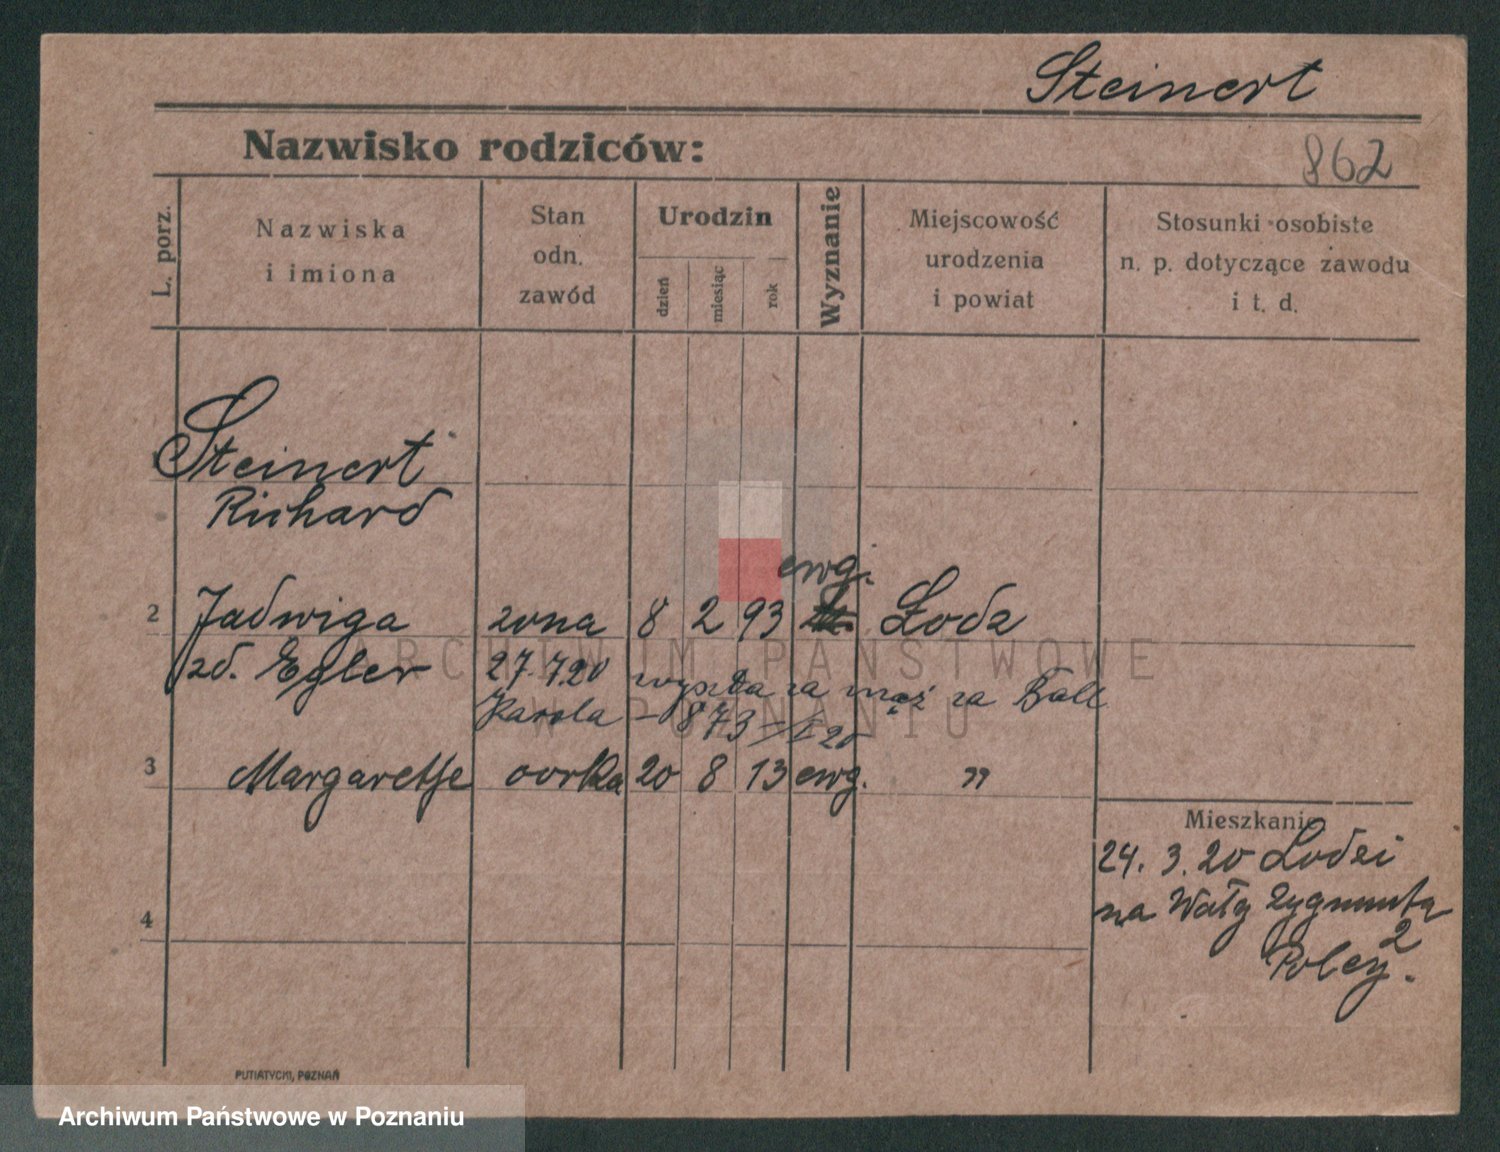 Steinert
Nazwisko rodziców:
862
L. porz.
Nazwiska
i imiona
Stan
odn.
zawód
Urodzin
dzień
miesiąc
rok
Wyznanie
Miejscowość
urodzenia
i powiat
Stosunki osobiste
n. p. dotyczące zawodu
i t. d.
Steinert
Richard
ewg.
2 Jadwiga żona 8 2 93 Łodz
zd. Egler 27.7.20 wyszła za mąż za Ball
Karola - 873
3 Margarethe corka 20 8 13 ewg. "
Mieszkanie
24. 3. 20 Łodzi
na Wały Zygmunta
2
4
PUTIATYCKI, POZNAŃ
ARCHIWUM PAŃSTWOWE
W POZNANIU
Archiwum Państwowe w Poznaniu